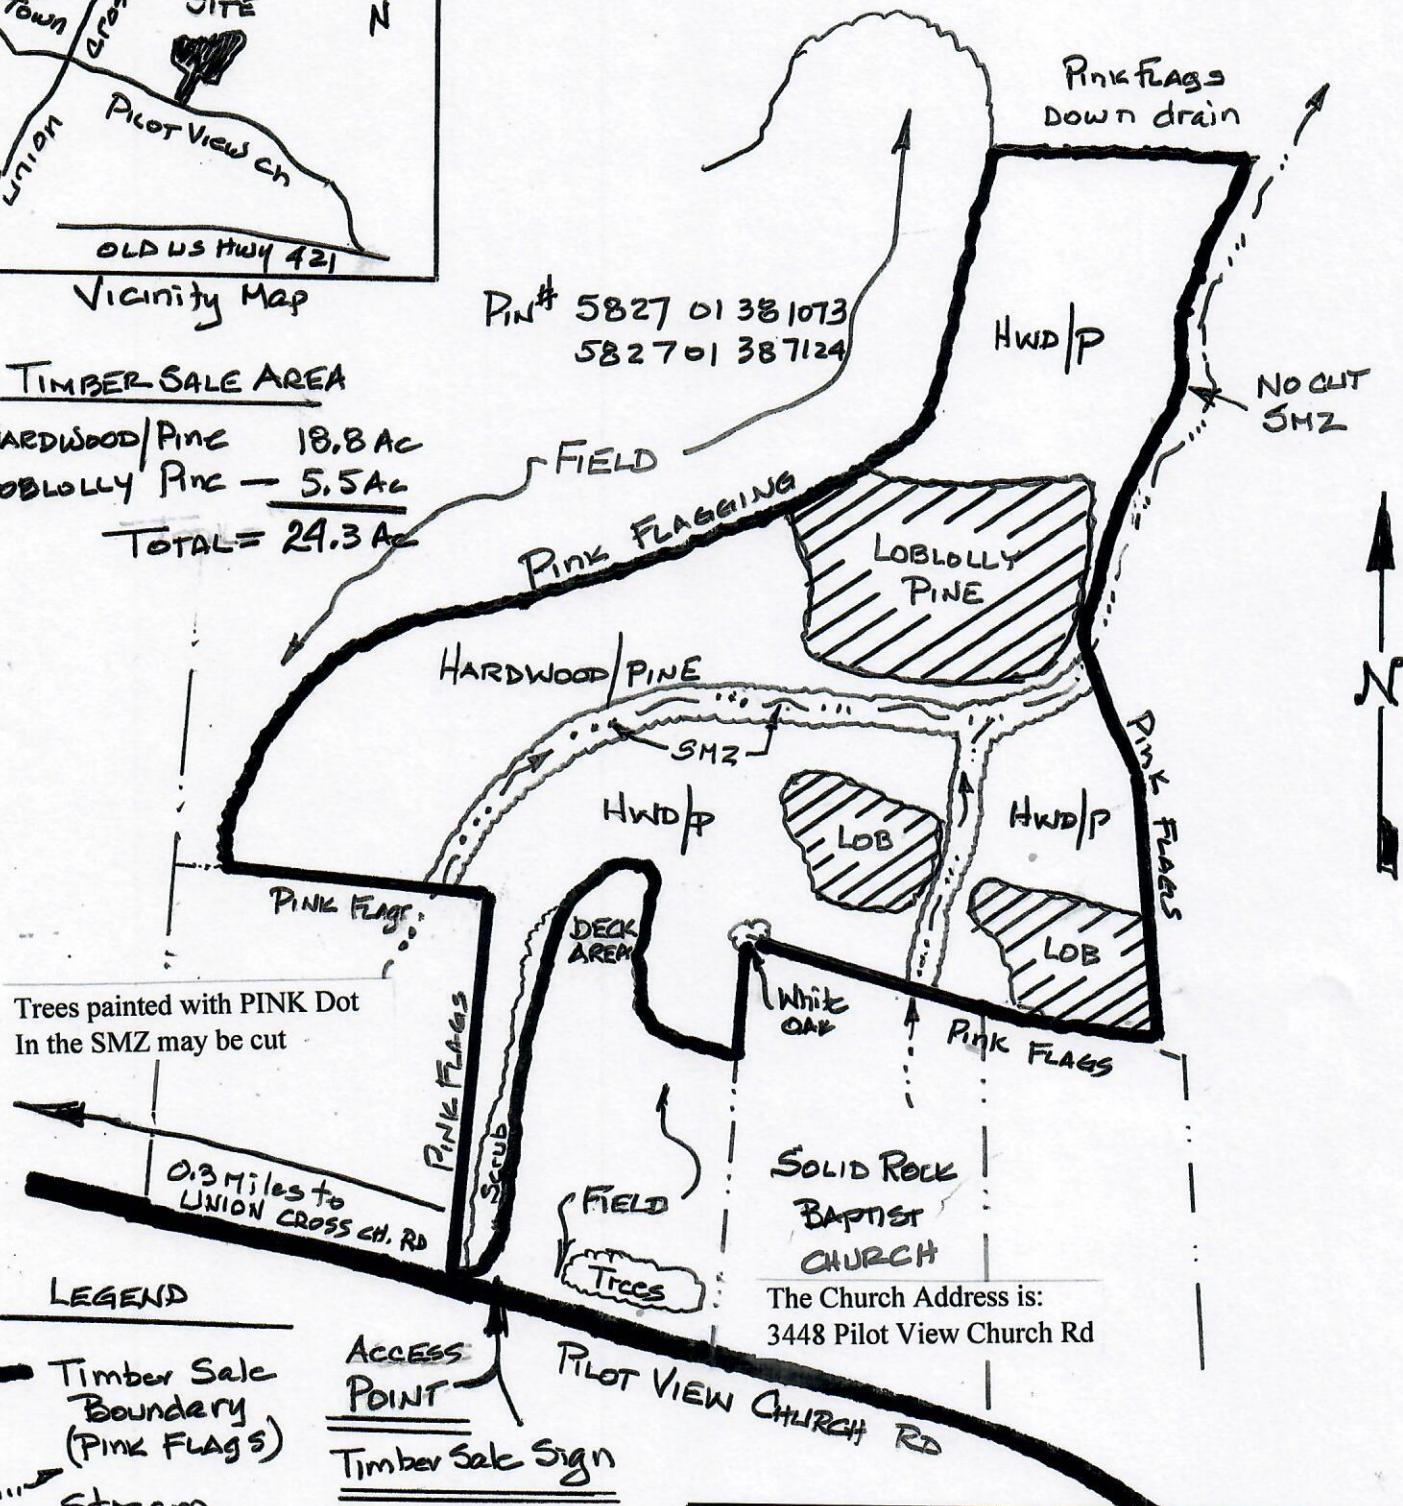 Town
Cros
SITE
N
UNION
PILOT VIEW CH
OLD US HWY 421
Vicinity Map
TIMBER SALE AREA
ARDWOOD/Pine 18.8 Ac
OBLOLLY Pine — 5.5 Ac
TOTAL = 24.3 Ac
Pink Flags
Down drain
Pin# 5827 01 381073
5827 01 387124
HWD/P
NO CUT
SMZ
FIELD
Pink FLAGGING
LOBLOLLY
PINE
N
HARDWOOD/PINE
SMZ
Pink FLAGS
HWD/P
LOB
HWD/P
PINK Flags
DECK
AREA
LOB
White
OAK
Pink FLAGS
Trees painted with PINK Dot
In the SMZ may be cut
PINK FLAGS
Scrub
0.3 Miles to
UNION CROSS CH. RD
FIELD
Trees
SOLID ROCK
BAPTIST
CHURCH
The Church Address is:
3448 Pilot View Church Rd
LEGEND
Timber Sale
Boundary
(Pink FLAGS)
Stream
ACCESS
POINT
Timber Sale Sign
PILOT VIEW CHURCH RD